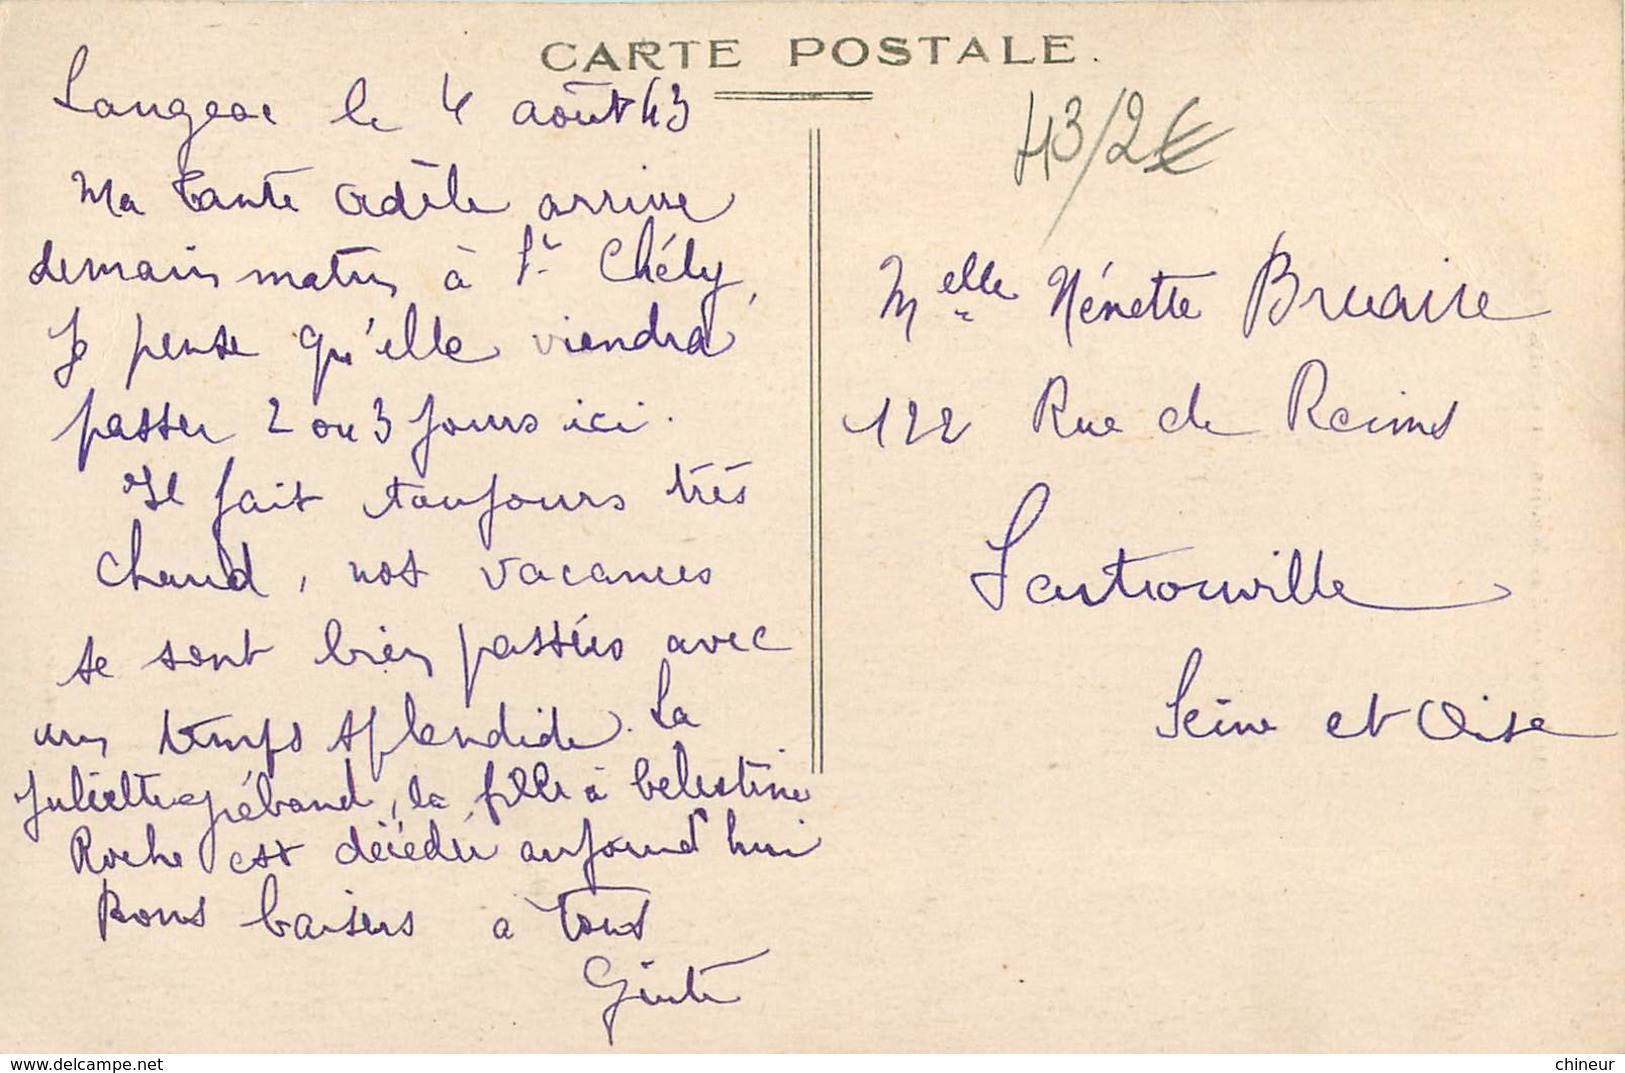 CARTE POSTALE.
Langeac le 4 août 43
Ma tante Adèle arrive
demain matin à St Chély,
Je pense qu'elle viendra
passer 2 ou 3 jours ici.
Il fait toujours très
chaud, nos vacances
se sont bien passées avec
un temps splendide. La
Juliette, la fille à Celestine
Roche est décédée aujourd'hui
Bons baisers à tous
43/2€
Melle Nénette Bruaire
122 Rue de Reims
Sartrouville
Seine et Oise
www.delcampe.net
chineur